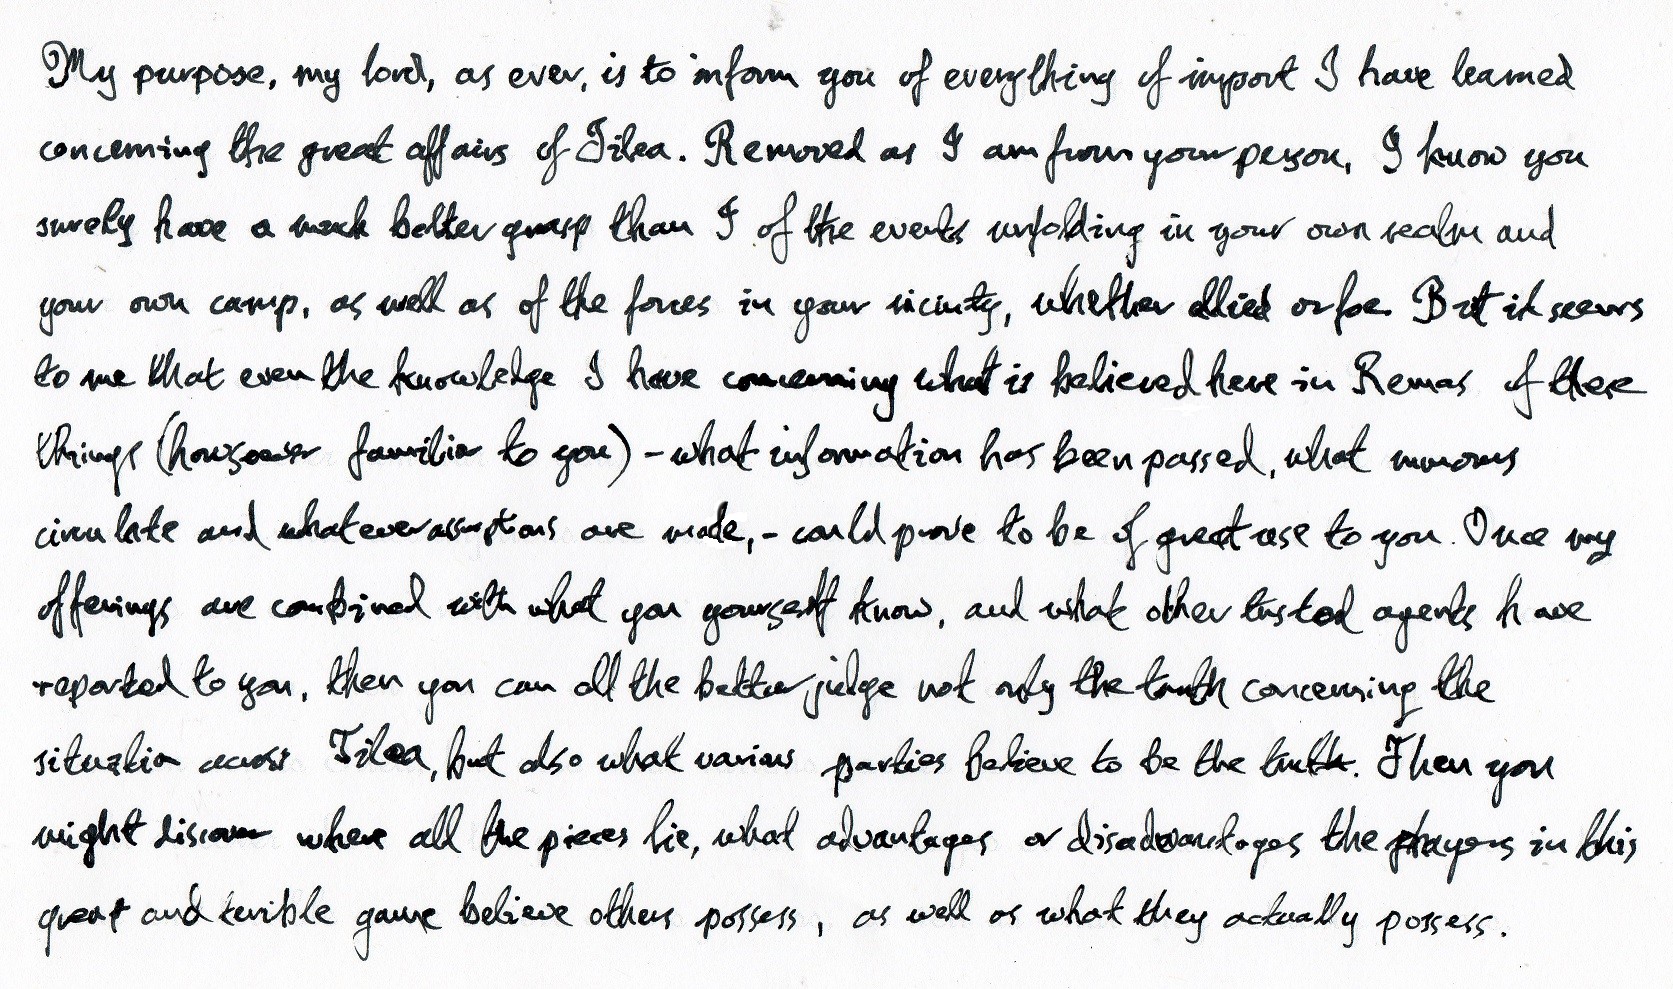 My purpose, my lord, as ever, is to inform you of everything of import I have learned
concerning the great affairs of Tilea. Removed as I am from your person, I know you
surely have a much better grasp than I of the events unfolding in your own realm and
your own camp, as well as of the forces in your vicinity, whether allied or foe. But it seems
to me that even the knowledge I have concerning what is believed here in Remas of these
things (howsoever familiar to you) - what information has been passed, what rumours
circulate and whatever assumptions are made, - could prove to be of great use to you. Once my
offerings are combined with what you yourself know, and what other trusted agents have
reported to you, then you can all the better judge not only the truth concerning the
situation across Tilea, but also what various parties believe to be the truth. Then you
might discover where all the pieces lie, what advantages or disadvantages the players in this
great and terrible game believe others possess, as well as what they actually possess.